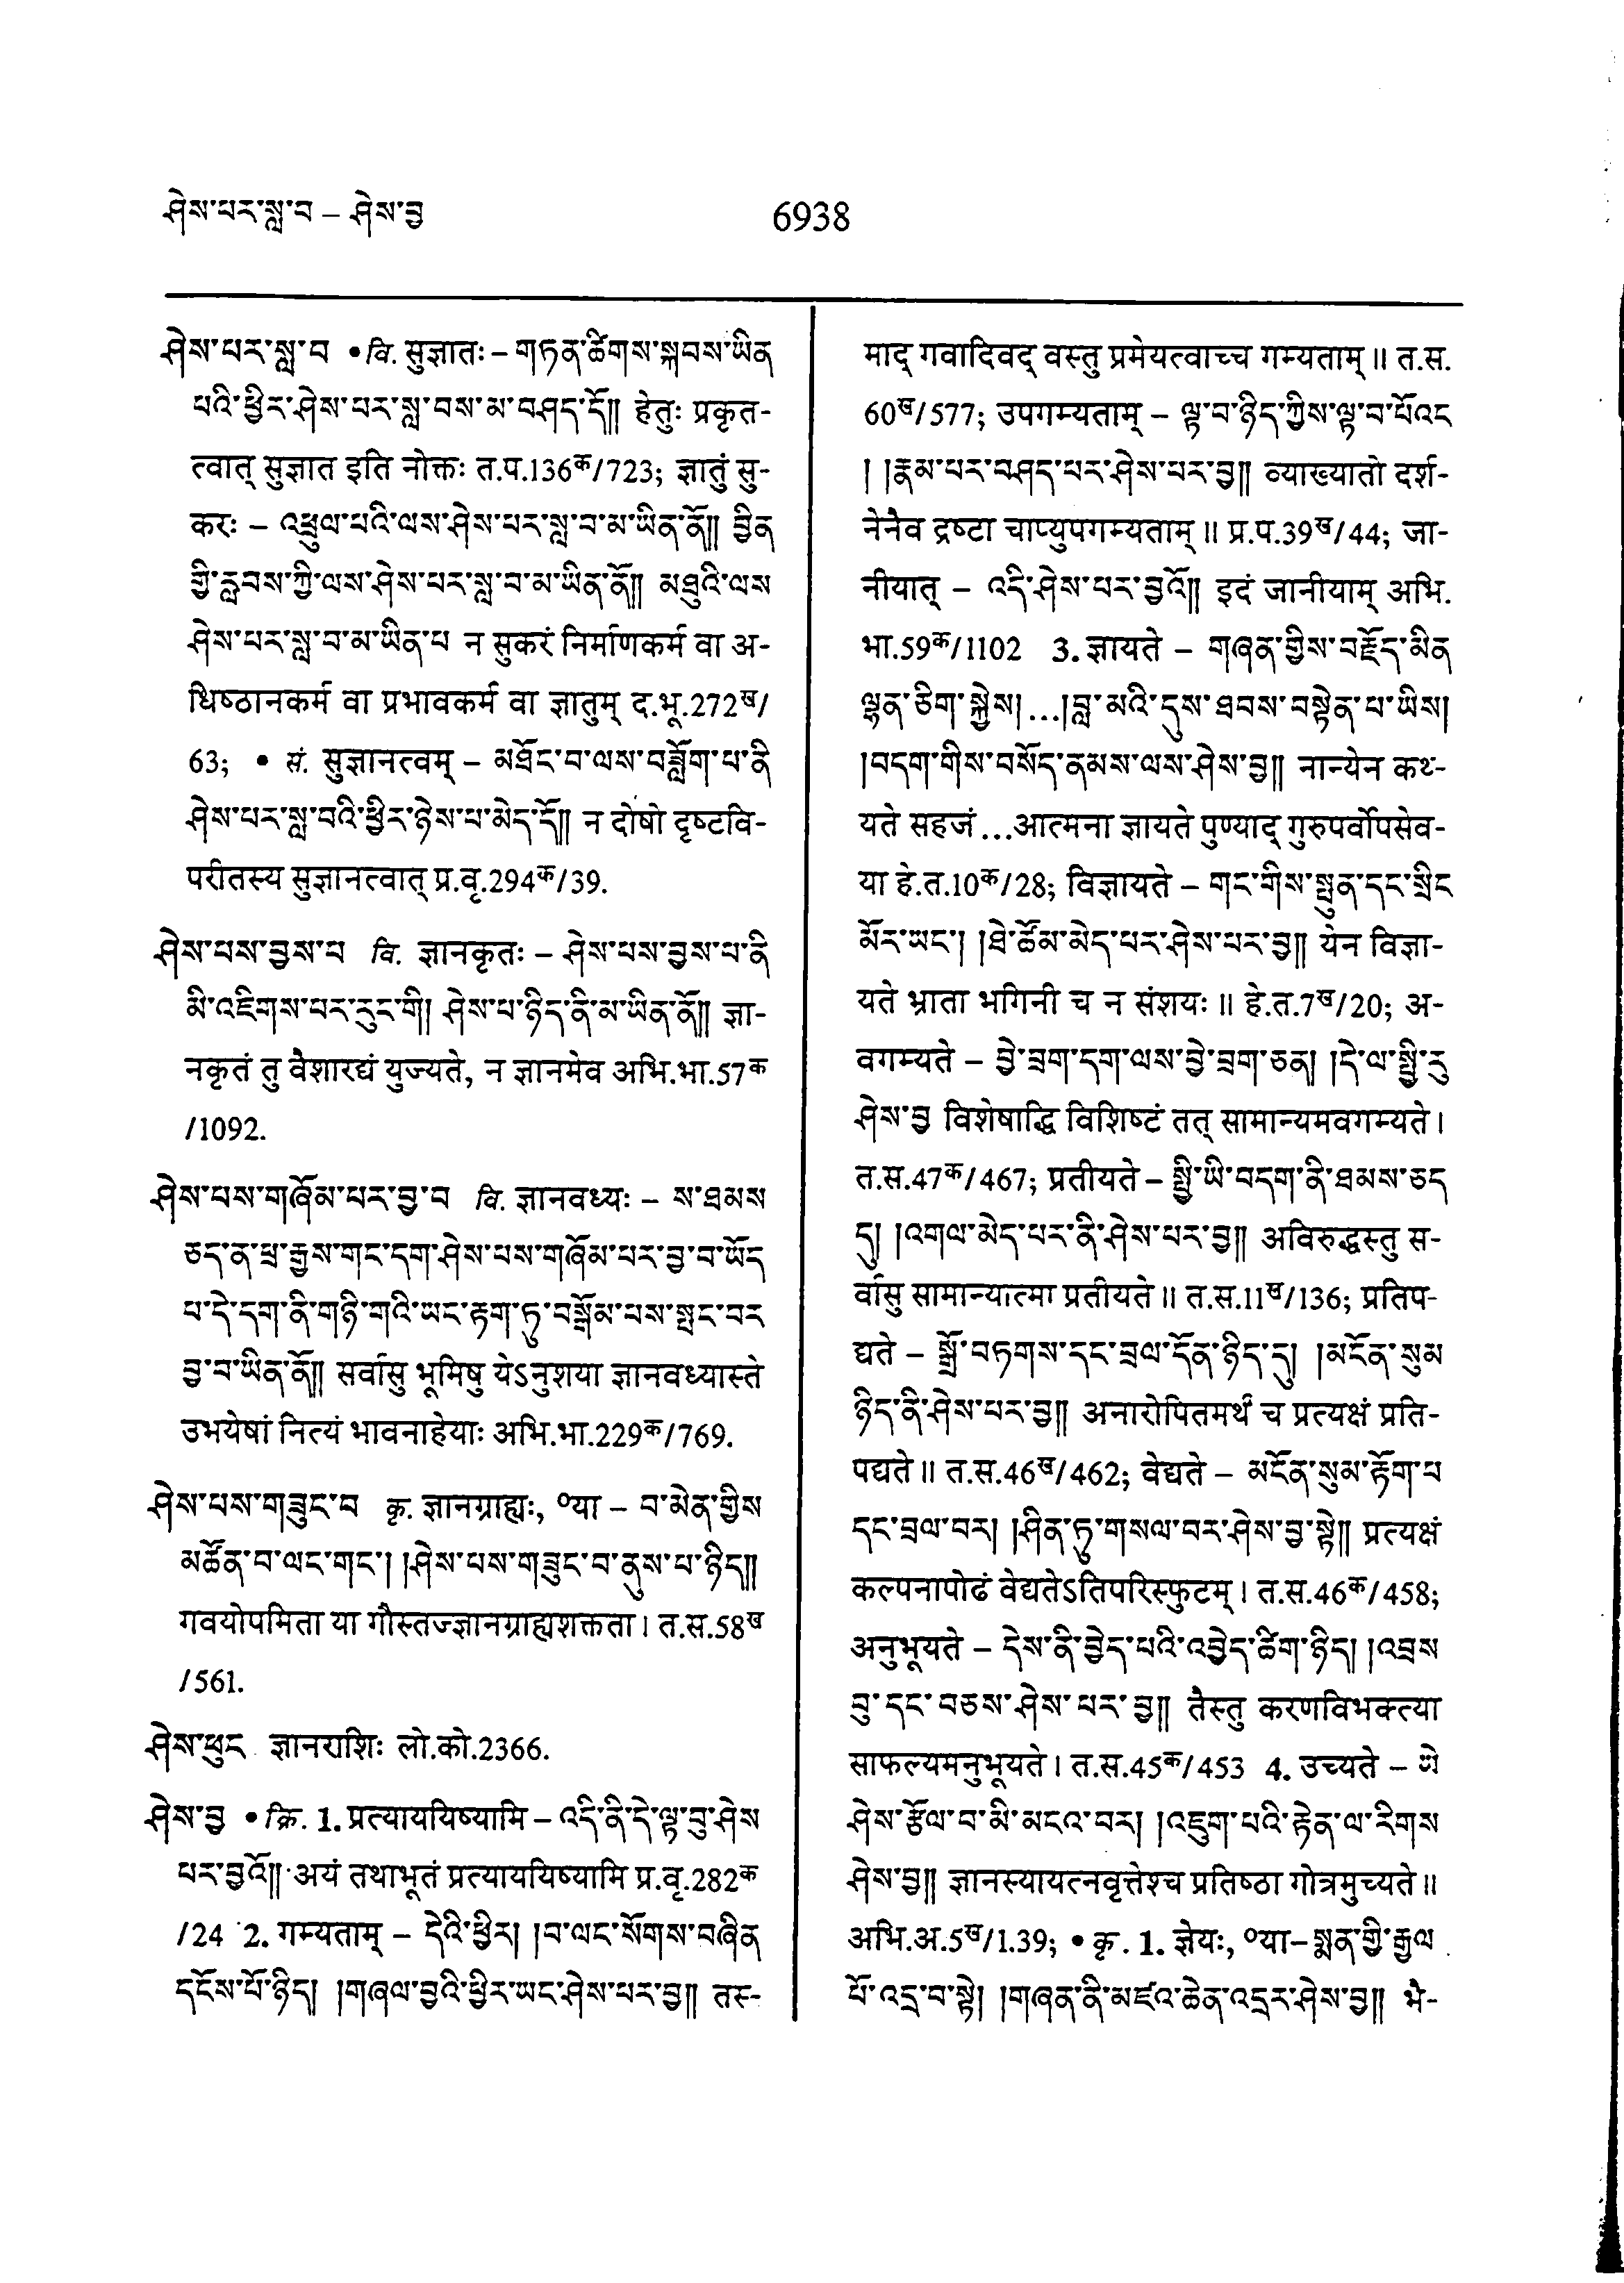 ཤེས་པར་སླ་བ – ཤེས་བྱ
6938
ཤེས་པར་སླ་བ • वि. सुज्ञातः – གཏན་ཚིགས་སྐབས་ཡིན
པའི་ཕྱིར་ཤེས་པར་སླ་བས་མ་བཤད་དོ།། हेतुः प्रकृत-
त्वात् सुज्ञात इति नोक्तः त.प.136क/723; ज्ञातुं सु-
करः – འཕྲུལ་པའི་ལས་ཤེས་པར་སླ་བ་མ་ཡིན་ནོ།། བྱིན
གྱི་རླབས་ཀྱི་ལས་ཤེས་པར་སླ་བ་མ་ཡིན་ནོ།། མཐུའི་ལས
ཤེས་པར་སླ་བ་མ་ཡིན་པ न सुकरं निर्माणकर्म वा अ-
धिष्ठानकर्म वा प्रभावकर्म वा ज्ञातुम् द.भू.272ख/
63; • सं. सुज्ञानत्वम् – མཐོང་བ་ལས་བཟློག་པ་ནི
ཤེས་པར་སླ་བའི་ཕྱིར་ཉེས་པ་མེད་དོ།། न दोषो दृष्टवि-
परीतस्य सुज्ञानत्वात् प्र.वृ.294क/39.
ཤེས་པས་བྱས་པ वि. ज्ञानकृतः – ཤེས་པས་བྱས་པ་ནི
མི་འཇིགས་པར་རུང་གི། ཤེས་པ་ཉིད་ནི་མ་ཡིན་ནོ།། ज्ञा-
नकृतं तु वैशारद्यं युज्यते, न ज्ञानमेव अभि.भा.57क
/1092.
ཤེས་པས་གཞོམ་པར་བྱ་བ वि. ज्ञानवध्यः – ས་ཐམས
ཅད་ན་ཕྲ་རྒྱས་གང་དག་ཤེས་པས་གཞོམ་པར་བྱ་བ་ཡོད
པ་དེ་དག་ནི་གཉི་གའི་ཡང་རྟག་ཏུ་བསྒོམ་པས་སྤང་བར
བྱ་བ་ཡིན་ནོ།། सर्वासु भूमिषु येऽनुशया ज्ञानवध्यास्ते
उभयेषां नित्यं भावनाहेयाः अभि.भा.229क/769.
ཤེས་པས་གཟུང་བ कृ. ज्ञानग्राह्यः, ०या – བ་མེན་གྱིས
མཚོན་བ་ལང་གང་། །ཤེས་པས་གཟུང་བ་ནུས་པ་ཉིད།།
गवयोपमिता या गौस्तज्ज्ञानग्राह्यशक्तता। त.स.58ख
/561.
ཤེས་ཕུང ज्ञानराशिः लो.को.2366.
ཤེས་བྱ • क्रि. 1. प्रत्याययिष्यामि – འདི་ནི་དེ་ལྟ་བུ་ཤེས
པར་བྱའོ།། अयं तथाभूतं प्रत्याययिष्यामि प्र.वृ.282क
/24 2. गम्यताम् – དེའི་ཕྱིར། །བ་ལང་སོགས་བཞིན
དངོས་པོ་ཉིད། །གཞལ་བྱའི་ཕྱིར་ཡང་ཤེས་པར་བྱ།། तस्-
माद् गवादिवद् वस्तु प्रमेयत्वाच्च गम्यताम्॥ त.स.
60ख/577; उपगम्यताम् – ལྟ་བ་ཉིད་ཀྱིས་ལྟ་བ་པོའང
། །རྣམ་པར་བཤད་པར་ཤེས་པར་བྱ།། व्याख्यातो दर्श-
नेनैव द्रष्टा चाप्युपगम्यताम्॥ प्र.प.39ख/44; जा-
नीयात् – འདི་ཤེས་པར་བྱའོ།། इदं जानीयाम् अभि.
भा.59क/1102 3. ज्ञायते – གཞན་གྱིས་བརྗོད་མིན
ལྷན་ཅིག་སྐྱེས། ...།བླ་མའི་དུས་ཐབས་བསྟེན་པ་ཡིས།
།བདག་གིས་བསོད་ནམས་ལས་ཤེས་བྱ།། नान्येन कथ्-
यते सहजं ...आत्मना ज्ञायते पुण्याद् गुरुपर्वोपसेव-
या हे.त.10क/28; विज्ञायते – གང་གིས་སྤུན་དང་སྲིང
མོར་ཡང་། །ཐེ་ཚོམ་མེད་པར་ཤེས་པར་བྱ།། येन विज्ञा-
यते भ्राता भगिनी च न संशयः॥ हे.त.7ख/20; अ-
वगम्यते – བྱེ་བྲག་དག་ལས་བྱེ་བྲག་ཅན། །དེ་ལ་སྤྱི་རུ
ཤེས་བྱ विशेषाद्धि विशिष्टं तत् सामान्यमवगम्यते।
त.स.47क/467; प्रतीयते – སྤྱི་ཡི་བདག་ནི་ཐམས་ཅད
དུ། །འགལ་མེད་པར་ནི་ཤེས་པར་བྱ།། अविरुद्धस्तु स-
र्वासु सामान्यात्मा प्रतीयते॥ त.स.11ख/136; प्रतिप-
द्यते – སྒྲོ་བཏགས་དང་བྲལ་དོན་ཉིད་དུ། །མངོན་སུམ
ཉིད་ནི་ཤེས་པར་བྱ།། अनारोपितमर्थं च प्रत्यक्षं प्रति-
पद्यते॥ त.स.46ख/462; वेद्यते – མངོན་སུམ་རྟོག་པ
དང་བྲལ་བར། །ཤིན་ཏུ་གསལ་བར་ཤེས་བྱ་སྟེ།། प्रत्यक्षं
कल्पनापोढं वेद्यतेऽतिपरिस्फुटम्। त.स.46क/458;
अनुभूयते – དེས་ནི་བྱེད་པའི་འབྱེད་ཚིག་ཉིད། །འབྲས
བུ་དང་བཅས་ཤེས་པར་བྱ།། तैस्तु करणविभक्त्या
साफल्यमनुभूयते। त.स.45क/453 4. उच्यते – ཡེ
ཤེས་རྩོལ་བ་མི་མངའ་བར། །འཇུག་པའི་རྟེན་ལ་རིགས
ཤེས་བྱ།། ज्ञानस्यायत्नवृत्तेश्च प्रतिष्ठा गोत्रमुच्यते॥
अभि.अ.5ख/1.39; • कृ. 1. ज्ञेयः, ०या– སྨན་གྱི་རྒྱལ
པོ་འདྲ་བ་སྟེ། །གཞན་ནི་མཛའ་ཆེན་འདྲར་ཤེས་བྱ།། भै-